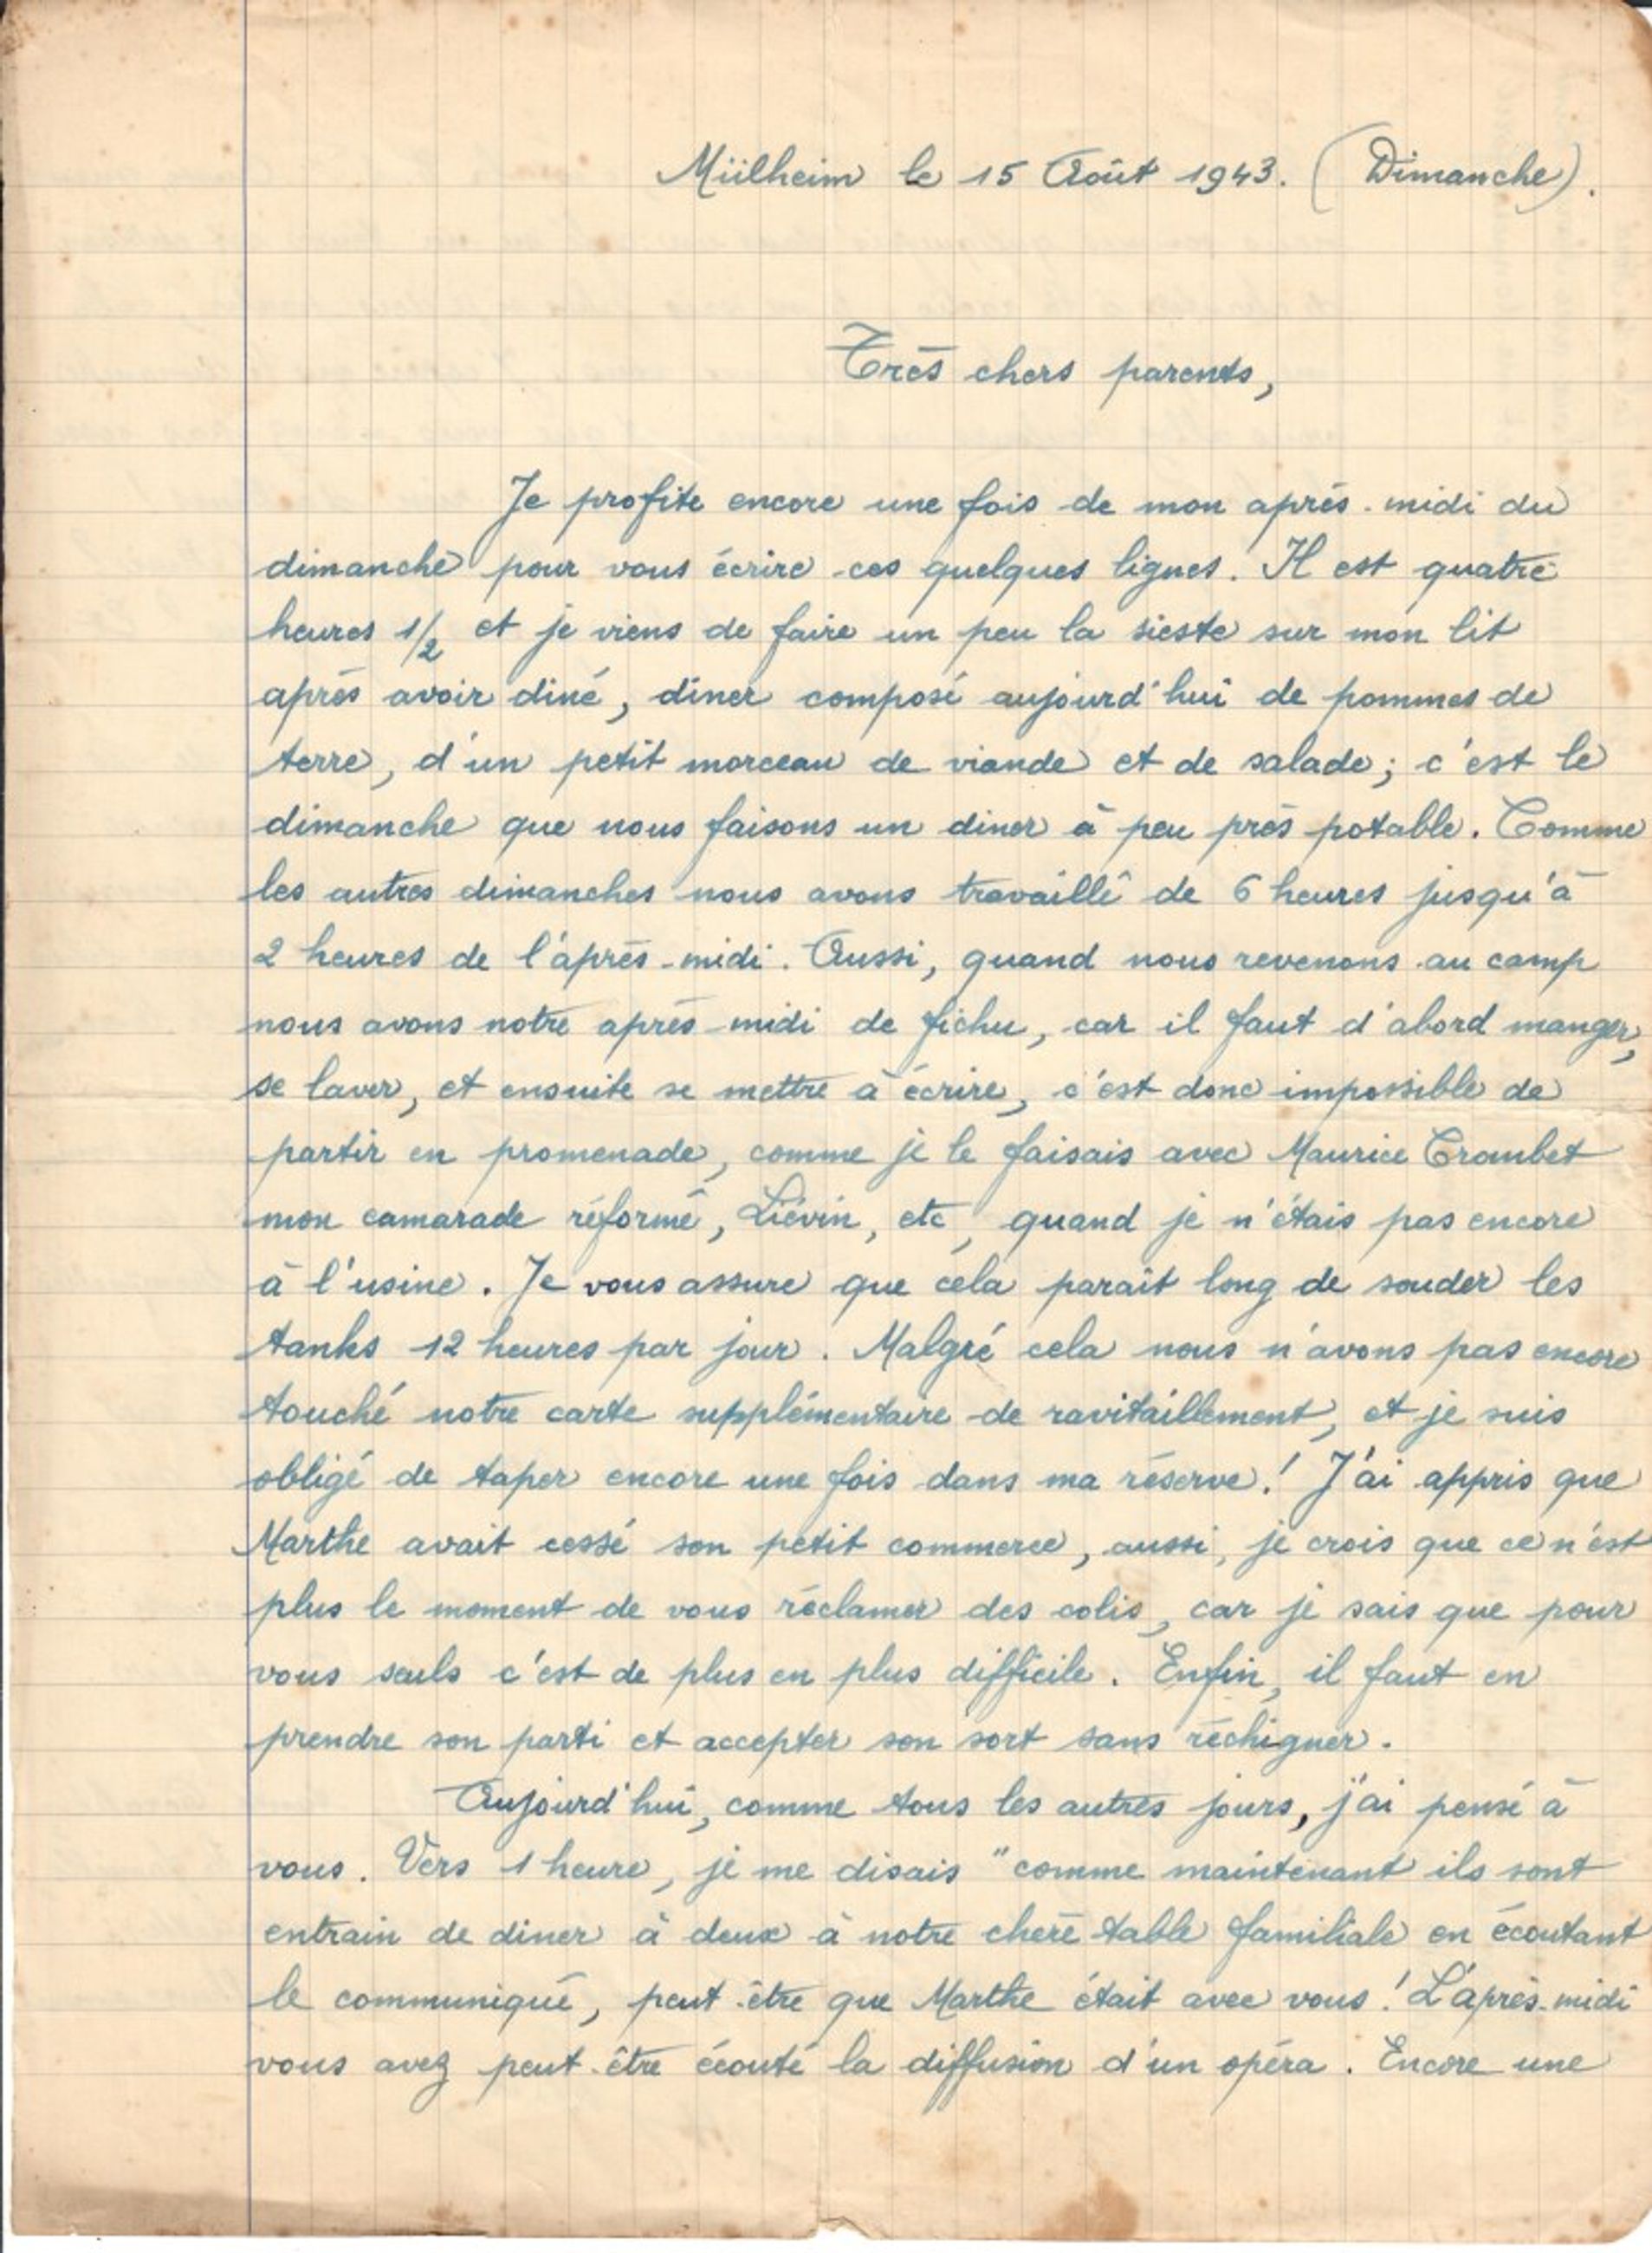 Mülheim le 15 Août 1943. (Dimanche).
Très chers parents,
Je profite encore une fois de mon après-midi du
dimanche pour vous écrire ces quelques lignes. Il est quatre
heures 1/2 et je viens de faire un peu la sieste sur mon lit
après avoir diné, diner composé aujourd'hui de pommes de
terre, d'un petit morceau de viande et de salade; c'est le
dimanche que nous faisons un diner à peu près potable. Comme
les autres dimanches nous avons travaillé de 6 heures jusqu'à
2 heures de l'après-midi. Aussi, quand nous revenons au camp
nous avons notre après-midi de fichu, car il faut d'abord manger,
se laver, et ensuite se mettre à écrire, c'est donc impossible de
partir en promenade, comme je le faisais avec Maurice Crombet
mon camarade réformé, Liévin, etc, quand je n'étais pas encore
à l'usine. Je vous assure que cela paraît long de souder les
tanks 12 heures par jour. Malgré cela nous n'avons pas encore
touché notre carte supplémentaire de ravitaillement, et je suis
obligé de taper encore une fois dans ma réserve! J'ai appris que
Marthe avait cessé son petit commerce, aussi, je crois que ce n'est
plus le moment de vous réclamer des colis, car je sais que pour
vous seuls c'est de plus en plus difficile. Enfin, il faut en
prendre son parti et accepter son sort sans réchigner.
Aujourd'hui, comme tous les autres jours, j'ai pensé à
vous. Vers 1 heure, je me disais "comme maintenant ils sont
entrain de diner à deux à notre chère table familiale en écoutant
le communiqué, peut-être que Marthe était avec vous! L'après-midi
vous avez peut-être écouté la diffusion d'un opéra. Encore une